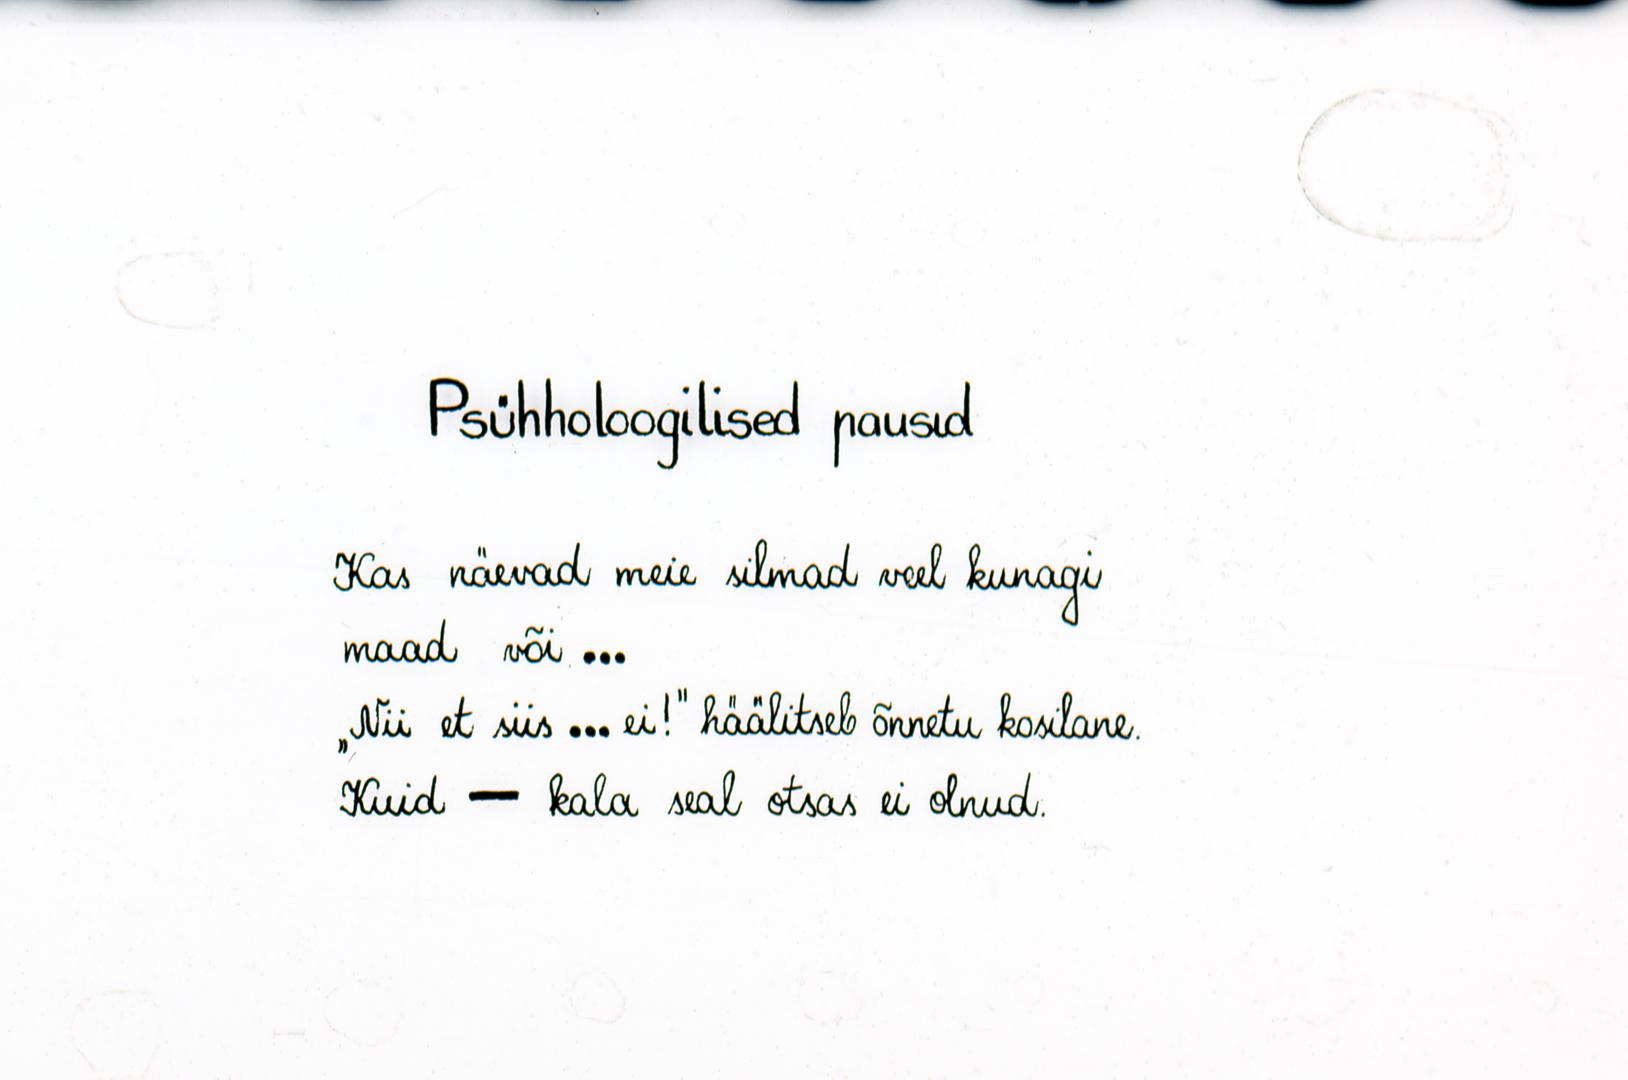 Psühholoogilised pausid
Kas näevad meie silmad veel kunagi
maad või ...
„Nii et siis ... ei!" häälitseb õnnetu kosilane.
Kuid — kala seal otsas ei olnud.